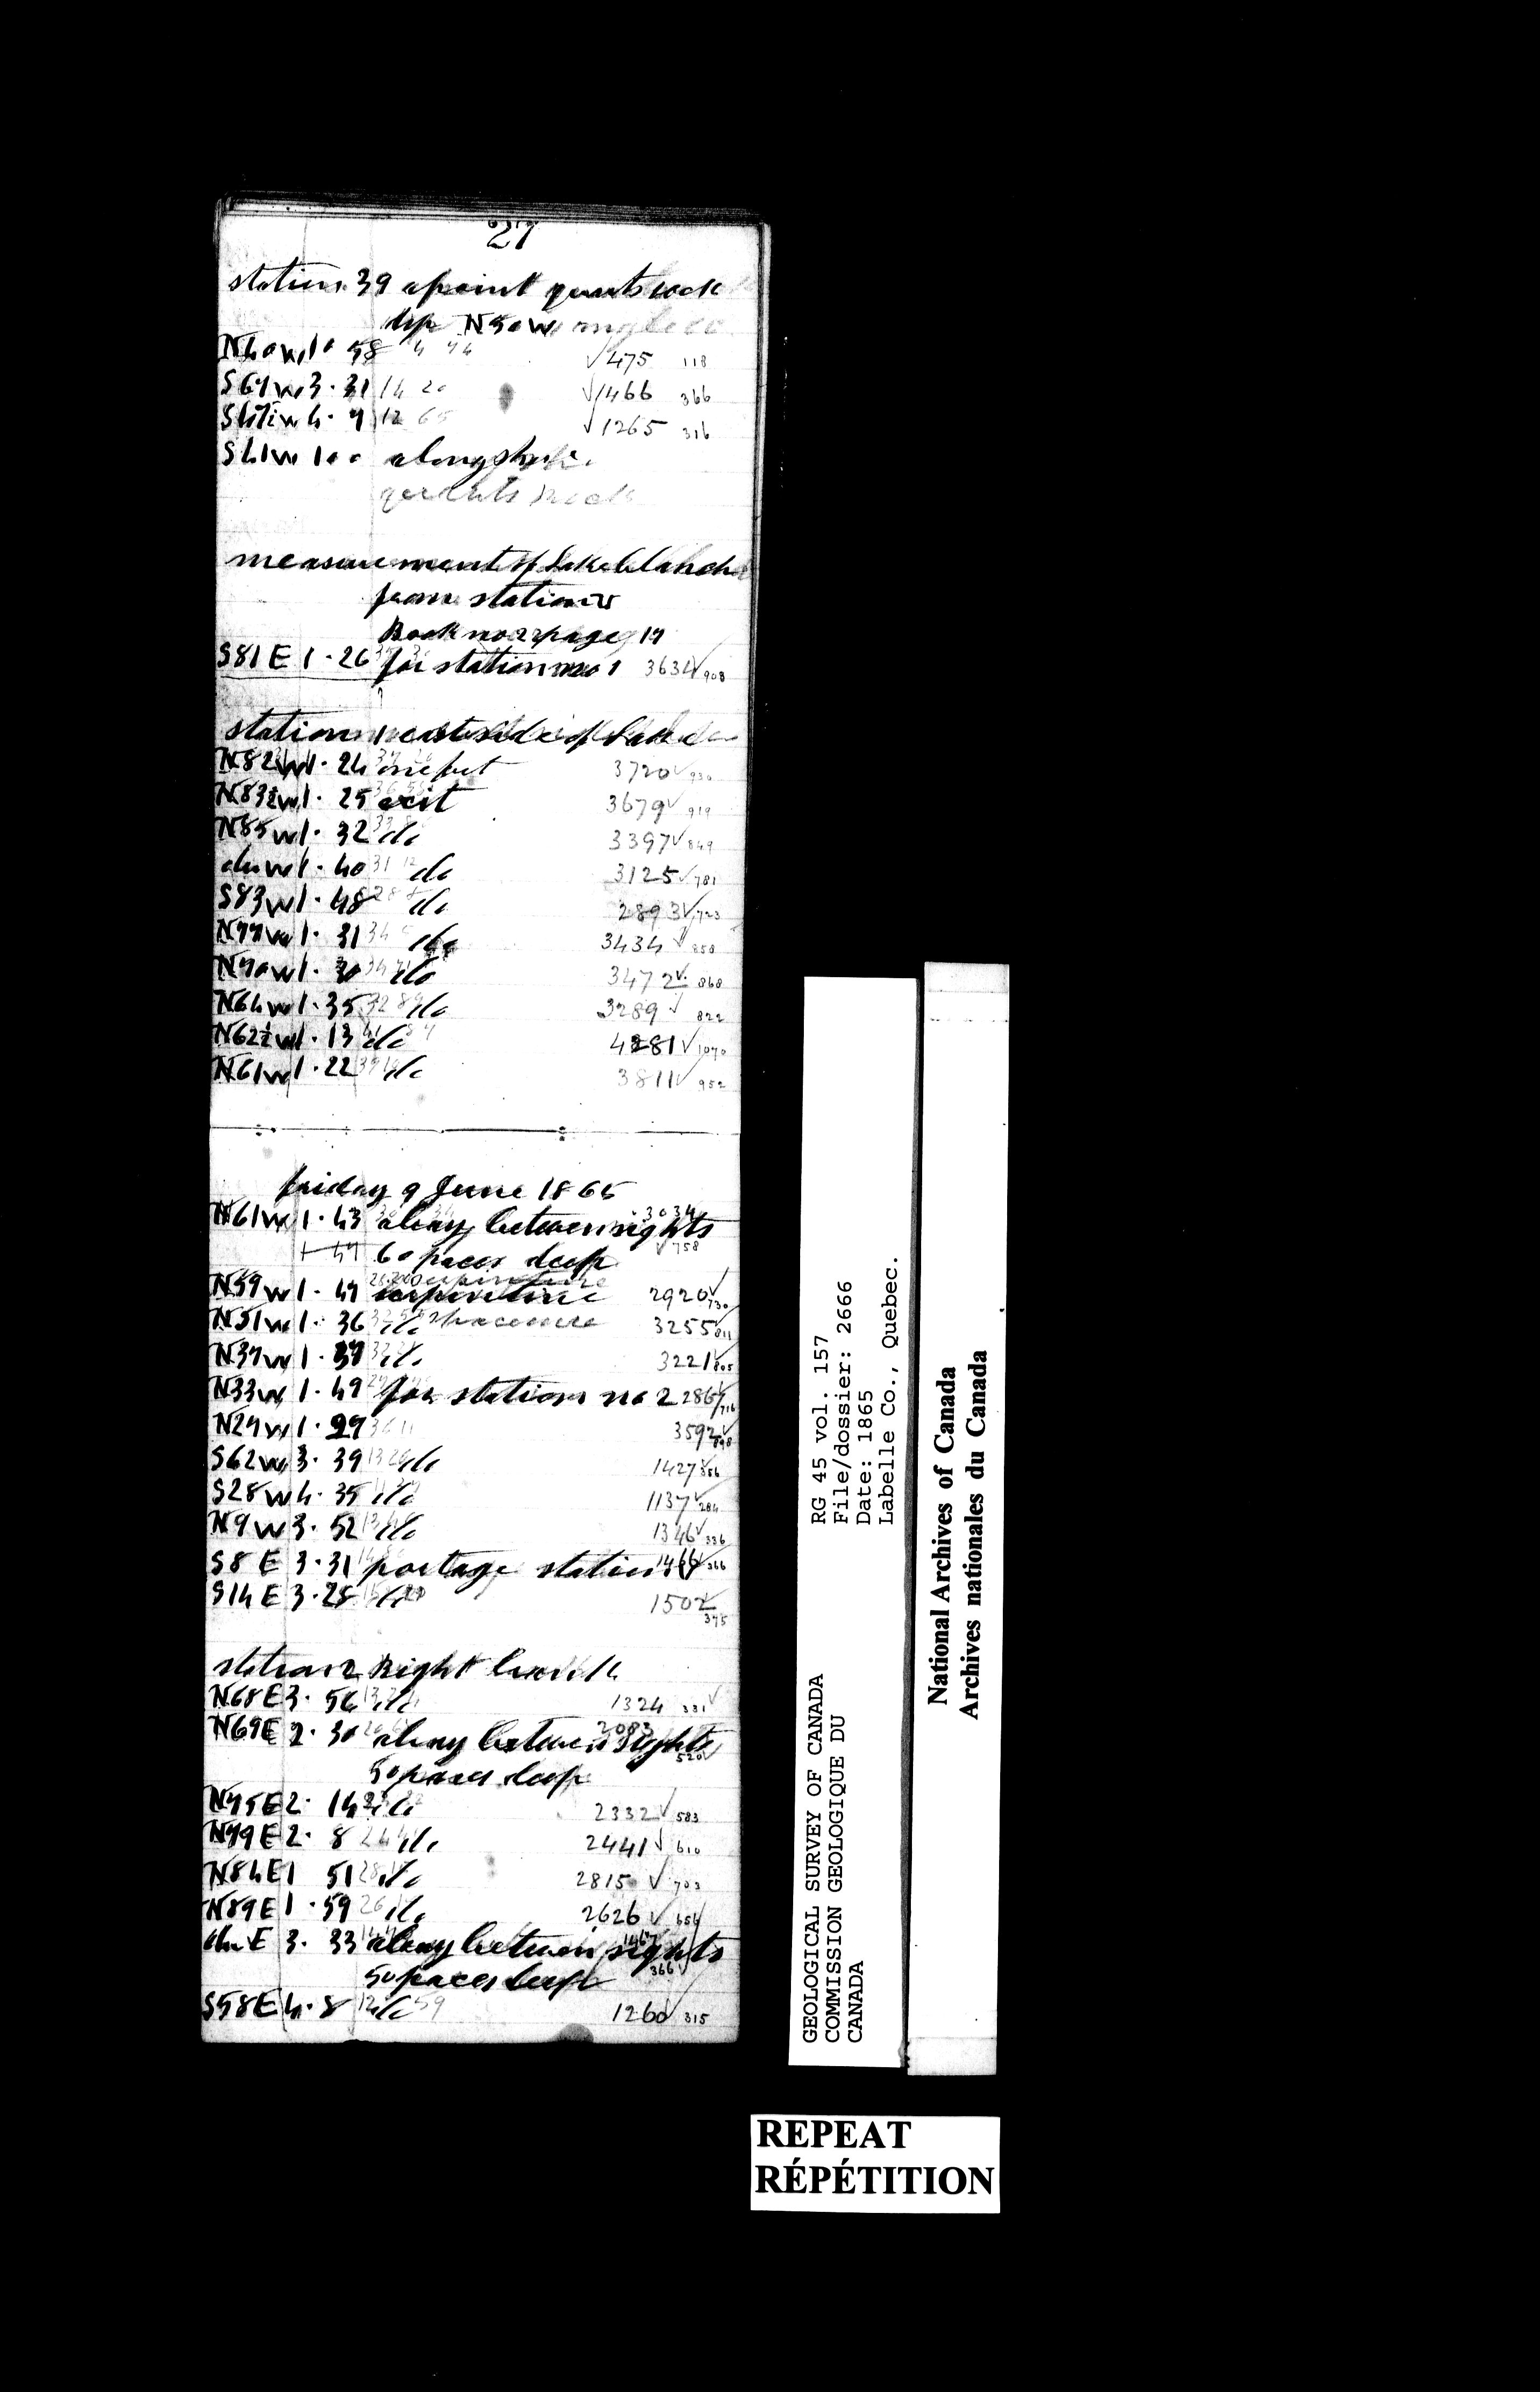 27
station 39 a point quarts rock
dip N50W
N60W 10 58 √475 118
S67W 3.31 14 20 √1466 366
S47½W 4.7 12 65 √1265 316
S41W 100 along shore
quarts rock
measurement of Lake blanche
from station
Book no 2 page 17
S81E 1.26 for station no 1 3634√ 908
station 1 east side of Lake
N82W 1.24 one foot 3720√ 930
N83½W 1.25 3679√ 919
N85W 1.32 do 3397√ 849
W 1.40 31 12 do 3125√ 781
S83W 1.48 do 2893√ 723
N77W 1.31 34 do 3434√ 858
N70W 1.30 do 3472√ 868
N64W 1.35 3289 do 3289√ 822
N62½W 1.13 do 4281√ 1070
N61W 1.22 do 3811√ 952
friday 9 June 1865
N61W 1.43 along between sights 3034
1 47 60 paces deep √758
N59W 1.47 serpentine 2920√ 730
N51W 1.36 do 3255√ 811
N37W 1.37 do 3221√ 805
N33W 1.49 for station no 2 2867√ 716
N27W 1.27 3592√ 898
S62W 3.39 do 1427√ 356
S28W 4.35 do 1137√ 284
N9W 3.52 do 1346√ 336
S8E 3.31 portage station 1466√ 366
S14E 3.28 do 1502√ 375
station 2 Right
N68E 3.56 do 1324 331√
N69E 2.30 along between sights 2083
50 paces deep 520√
N75E 2.14 do 2332√ 583
N79E 2.8 do 2441√ 610
N84E 1 51 do 2815√ 703
N89E 1.59 do 2626√ 656
E 3.33 along between sights 1467
50 paces deep 366√
S58E 4.8 do 1260√ 315
GEOLOGICAL SURVEY OF CANADA
COMMISSION GEOLOGIQUE DU
CANADA
RG 45 vol. 157
File/dossier: 2666
Date: 1865
Labelle Co., Quebec.
National Archives of Canada
Archives nationales du Canada
REPEAT
RÉPÉTITION